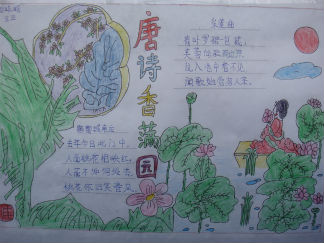 唐诗香满园
采莲曲
荷叶罗裙一色裁，
芙蓉向脸两边开。
乱入池中看不见，
闻歌始觉有人来。
题都城南庄
去年今日此门中，
人面桃花相映红。
人面不知何处去，
桃花依旧笑春风。